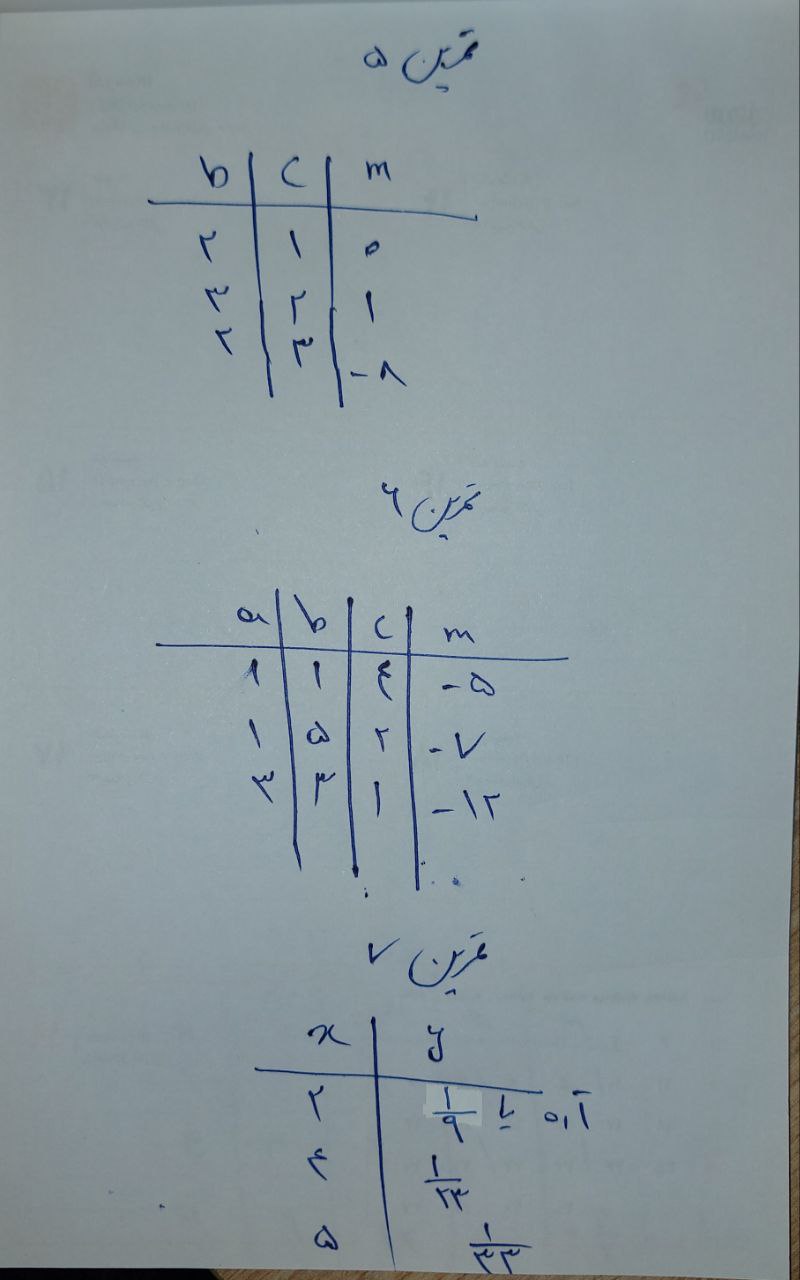 تمرین ۵
b c m
۲ ۱ ۰
۳ ۲ ۱
۲ ۳ -۸
تمرین ۶
a b c m
۲ ۱ ۳ -۵
۱ ۵ ۲ -۷
۳ ۴ ۱ -۱۲
تمرین ۷
x y
۲ ۱/۹ یا ۰٫۱̄
۳ ۱/۲۳
۵ ۱/۳۳